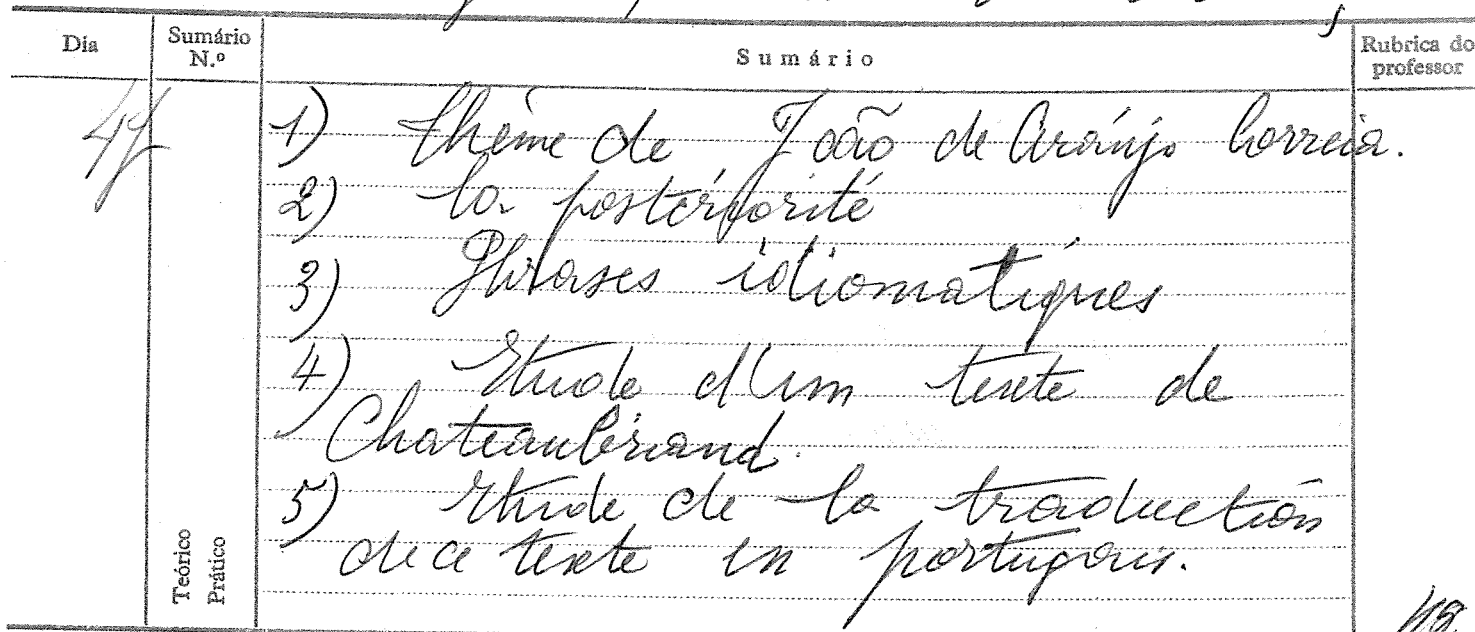 Dia
Sumário N.º
Sumário
Rubrica do professor
1) thème de João de Araújo Correia.
2) la postériorité
3) Phrases idiomatiques
4) Etude d'un texte de
Chateaubriand.
5) Etude de la traduction
de ce texte en portugais.
Teórico
Prático